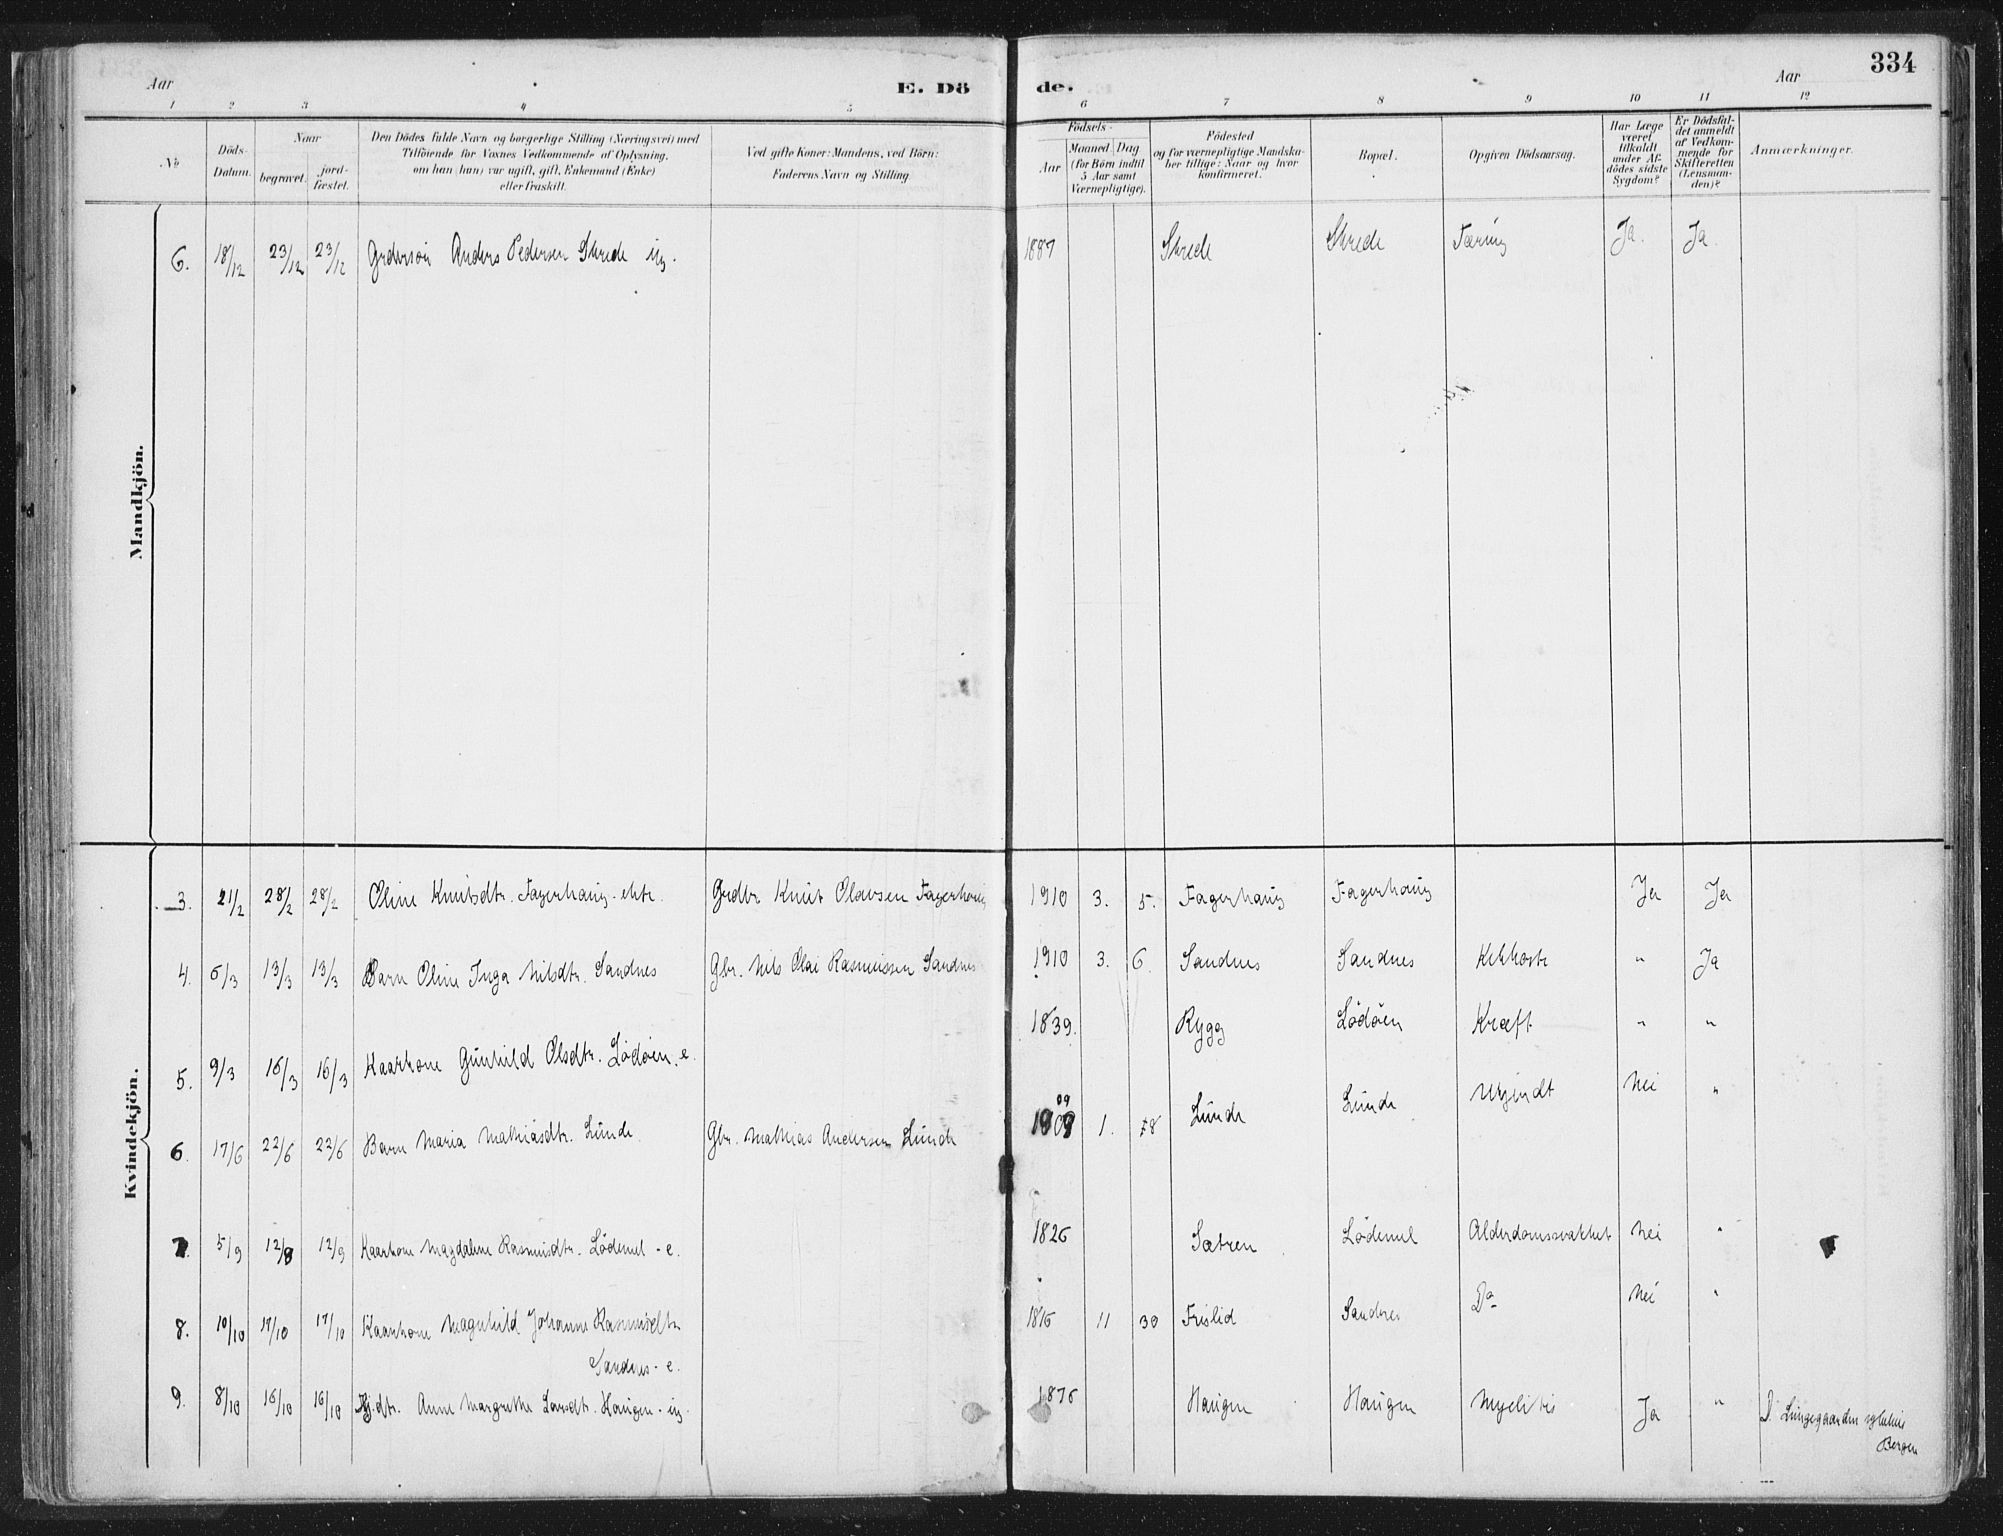 334
Aar E. Dö de. Aar
1 2 3 4 5 6 7 8 9 10 11 12
No
Döds-
Datum.
Naar
begravet. jord-
fæstet.
Den Dödes fulde Navn og borgerlige Stilling (Næringsvei) med
Tilföiende for Voxnes Vedkommende af Oplysning,
om han (hun) var ugift, gift, Enkemand (Enke)
eller fraskilt.
Ved gifte Koner: Mandens, ved Börn:
Faderens Navn og Stilling
Födsels-
Aar
Maaned Dag
(for Börn indtil
5 Aar samt
Værnepligtige).
Födested
og for værnepligtige Mandska-
ber tillige: Naar og hvor
konfirmeret.
Bopæl.
Opgiven Dödsaarsag.
Har Læge
været
tilkaldt
under Af-
dödes sidste
Sygdom?
Er Dödsfal-
det anmeldt
af Vedkom-
mende for
Skifteretten
(Lensman-
den)?
Anmærkninger.
Mandkjön.
6. 18/12 23/12 23/12 Grdersön Anders Pedersen Skrede ug. 1887 Skrede Skrede Tæring Ja. Ja
Kvindekjön.
3. 21/2 28/2 28/2 Oline Knutsdtr. Fagerhaug - ekte. Grdbr Knut Olavsen Fagerhaug 1910 3. 5. Fagerhaug Fagerhaug Ja Ja
4. 6/3 13/3 13/3 Barn Oline Inga Nilsdtr. Sandnes Gbr. Nils Olai Rasmussen Sandnes 1910 3. 6. Sandnes Sandnes Kikhoste " Ja
5. 9/3 16/3 16/3 Kaarkone Gunhild Olsdtr. Lödöen. e. 1839. Rygg Lödöen Kræft " "
6. 17/6 22/6 22/6 Barn Maria Mathiasdtr. Lunde Gbr. Mathias Andersen Lunde 1909 09 1. 28 Lunde Lunde Ukjendt Nei "
7. 5/9 12/9 12/9 Kaarkone Magdalene Rasmusdtr. Lödemel - e. 1826 Sætren Lödemel Alderdomssvakhet Nei "
8. 10/10 17/10 17/10 Kaarkone Magnhild Johanne Rasmusdtr
Sandnes - e. 1816 11 30 Frislid Sandnes Do Nei "
9. 8/10 16/10 16/10 Gjdtr. Anne Margrethe Larsdtr. Haugen - ug. 1876 Haugen Haugen Myelitis Ja " D. Lungegaarden sykehus
Bergen